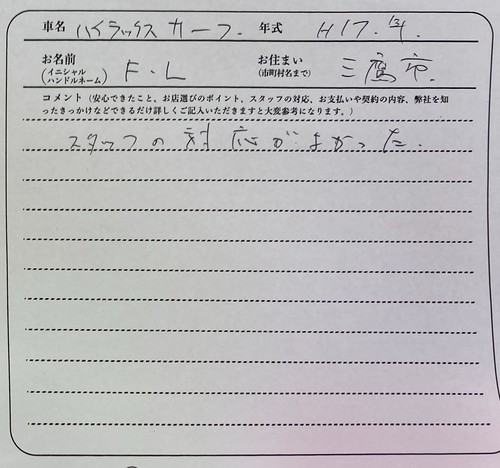 車名 ハイラックス サーフ. 年式 H17.
お名前 (イニシャル ハンドルネーム) F・L お住まい (市町村名まで) 三鷹市.
コメント(安心できたこと、お店選びのポイント、スタッフの対応、お支払いや契約の内容、弊社を知
ったきっかけなどできるだけ詳しくご記入いただきますと大変参考になります。)
スタッフの対応がよかった.